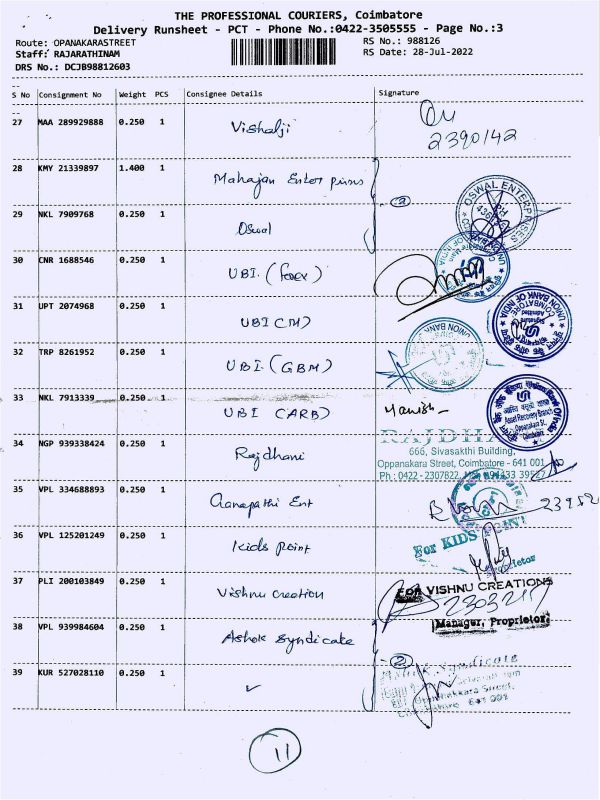 THE PROFESSIONAL COURIERS, Coimbatore
Delivery Runsheet - PCT - Phone No.:0422-3505555 - Page No.:3
Route: OPANAKARASTREET RS No.: 988126
Staff: RAJARATHINAM RS Date: 28-Jul-2022
DRS No.: DCJB98812603
S No Consignment No Weight PCS Consignee Details Signature
27 MAA 289929888 0.250 1 Vishalji
2390142
28 KMY 21339897 1.400 1 Mahajan Enterprises
2
OSWAL ENTERPRISES
29 NKL 7909768 0.250 1 Oswal
30 CNR 1688546 0.250 1 UBI. (forex)
UNION BANK OF INDIA
31 UPT 2074968 0.250 1 UBI (M)
UNION BANK OF INDIA
COIMBATORE
32 TRP 8261952 0.250 1 UBI. (GBM)
UNION BANK
33 NKL 7913339 0.250 1 UBI (ARB)
Manish
Asset Recovery Branch
Oppanakara St.,
Coimbatore
34 NGP 939338424 0.250 1 Rajdhani
666, Sivasakthi Building,
Oppanakara Street, Coimbatore - 641 001
Ph : 0422 - 2307822,
35 VPL 334688893 0.250 1 Ganapathi Ent
36 VPL 125201249 0.250 1 Kids Point
For KIDS
37 PLI 200103849 0.250 1 Vishnu creation
For VISHNU CREATIONS
Manager, Proprietor
38 VPL 939984604 0.250 1 Ashok Syndicate
2
Ashok Syndicate
39 KUR 527028110 0.250 1 ✓
11